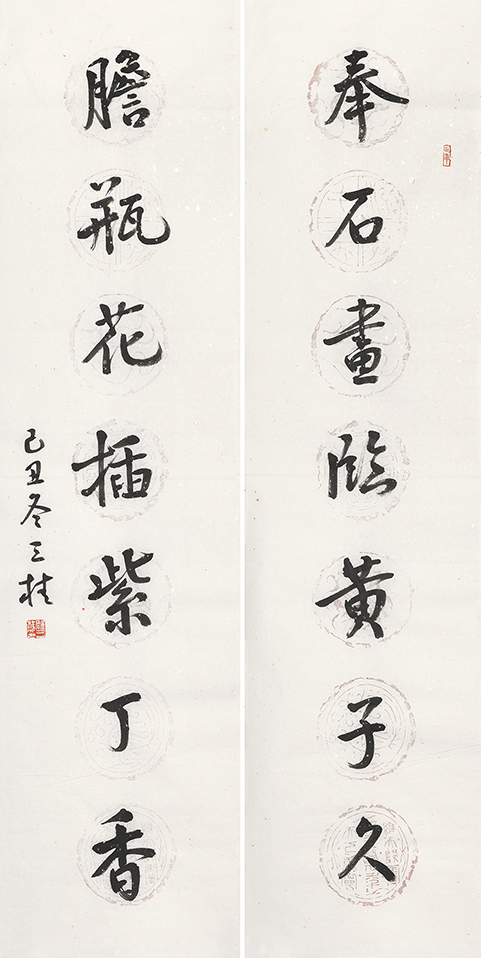 奉石畫臨黃子久
膽瓶花插紫丁香
己丑冬三桂